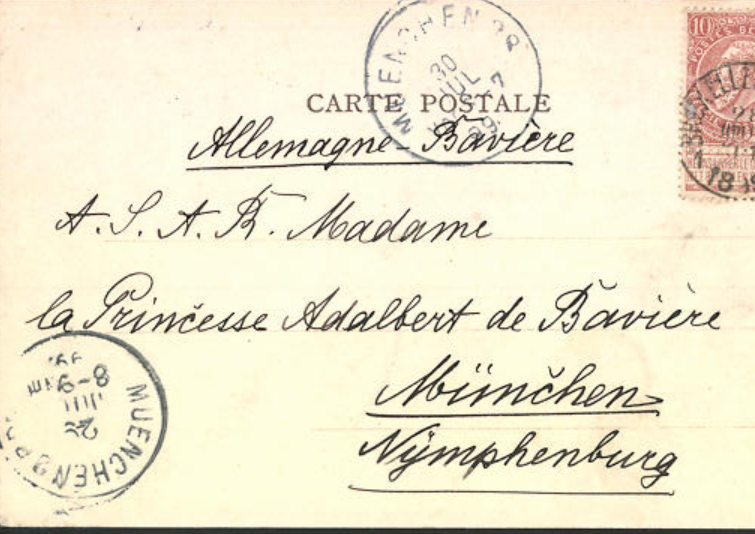 MUENCHEN 38
30
JUL
99
10
CARTE POSTALE
Allemagne-Bavière
A. S. A. R. Madame
la Princesse Adalbert de Bavière
München
Nymphenburg
MUENCHEN
8-9